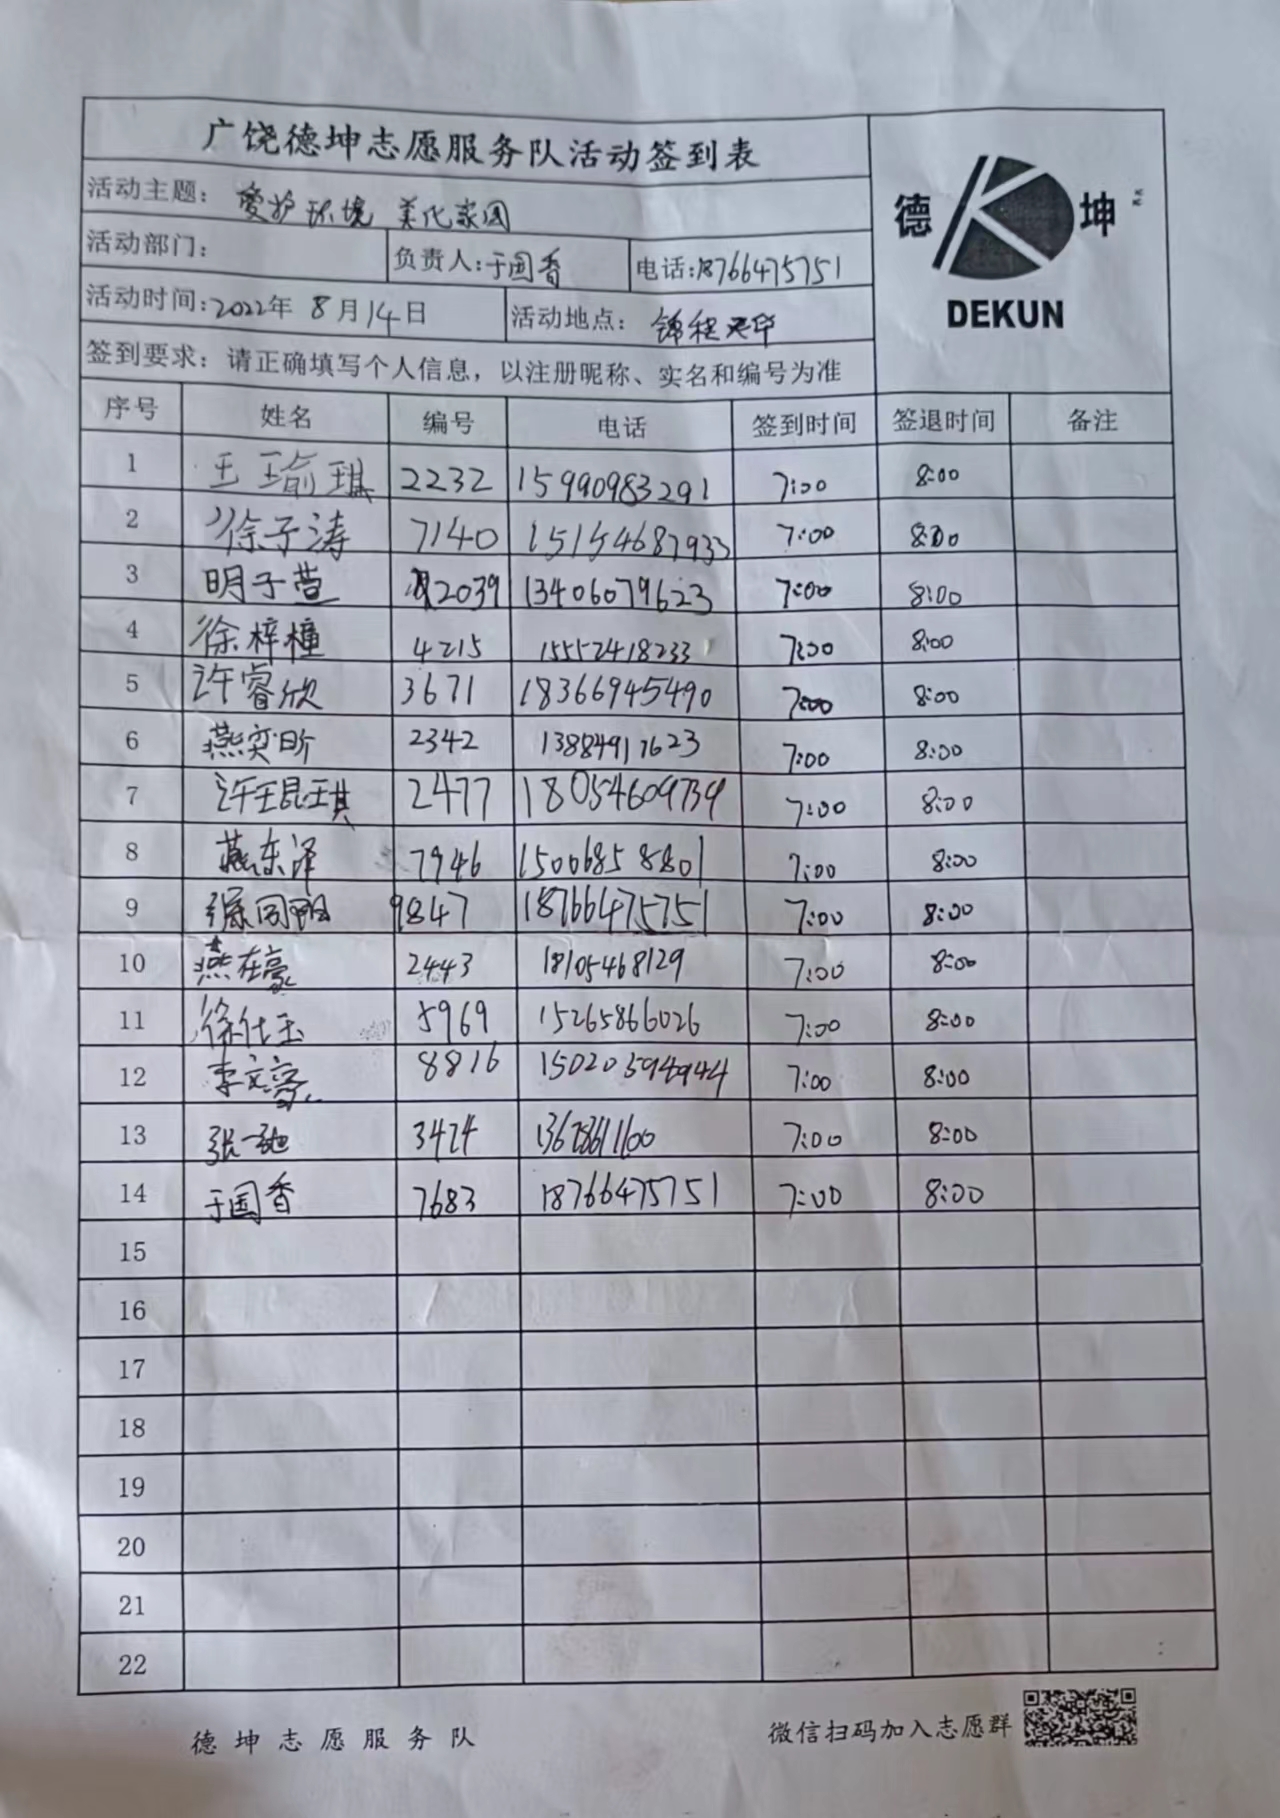 广饶德坤志愿服务队活动签到表
德 坤
DEKUN
活动主题: 爱护环境 美化家园
活动部门: 负责人:于国香 电话:18766475751
活动时间:2022年 8月14日 活动地点: 锦程
签到要求: 请正确填写个人信息, 以注册昵称、实名和编号为准
序号 姓名 编号 电话 签到时间 签退时间 备注
1 王瑜琪 2232 15990983291 7:00 8:00
2 徐子涛 7140 15154687933 7:00 8:00
3 明子萱 2039 13406079623 7:00 8:00
4 徐梓橦 4215 15552418233 7:00 8:00
5 许睿欣 3671 18366945490 7:00 8:00
6 燕奕昕 2342 13884917623 7:00 8:00
7 许琨琪 2477 18054609739 7:00 8:00
8 燕东泽 7946 15006858801 7:00 8:00
9 9847 18766475751 7:00 8:00
10 燕在豪 2443 18105468129 7:00 8:00
11 徐仕玉 5969 15265866026 7:00 8:00
12 李文豪 8816 15020594944 7:00 8:00
13 张一弛 3424 7:00 8:00
14 于国香 7683 18766475751 7:00 8:00
15
16
17
18
19
20
21
22
德坤志愿服务队 微信扫码加入志愿群